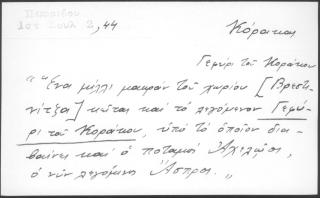 Πετρίδου
Ιστ Σουλ 2, 44
Κόρακας
Γεφύρι τοῦ Κοράκου
"Ἕνα μίλλι μακρὰν τοῦ χωρίου [Βρεστενίτζα] κεῖται καὶ τὸ λεγόμενον Γεφύρι τοῦ Κοράκου, ὑπὸ τὸ ὁποῖον διαβαίνει καὶ ὁ ποταμὸς Ἀχελῷος,
ὁ νῦν λεγόμενος Ἄσπρος."